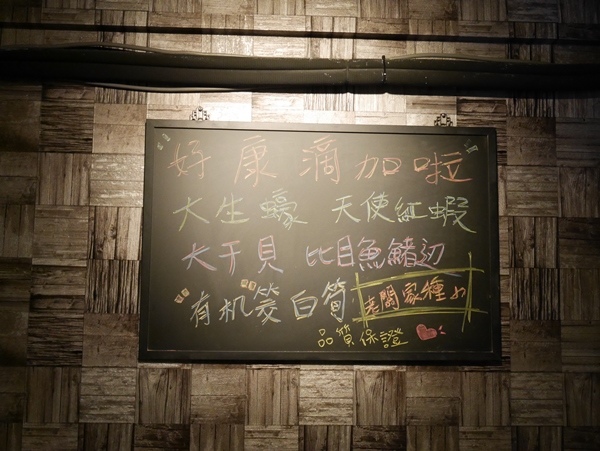 好康滴加啦
大生蠔 天使紅蝦
大干貝 比目魚鰭边
有机筊白筍 老闆家種ㄉ
品質保證